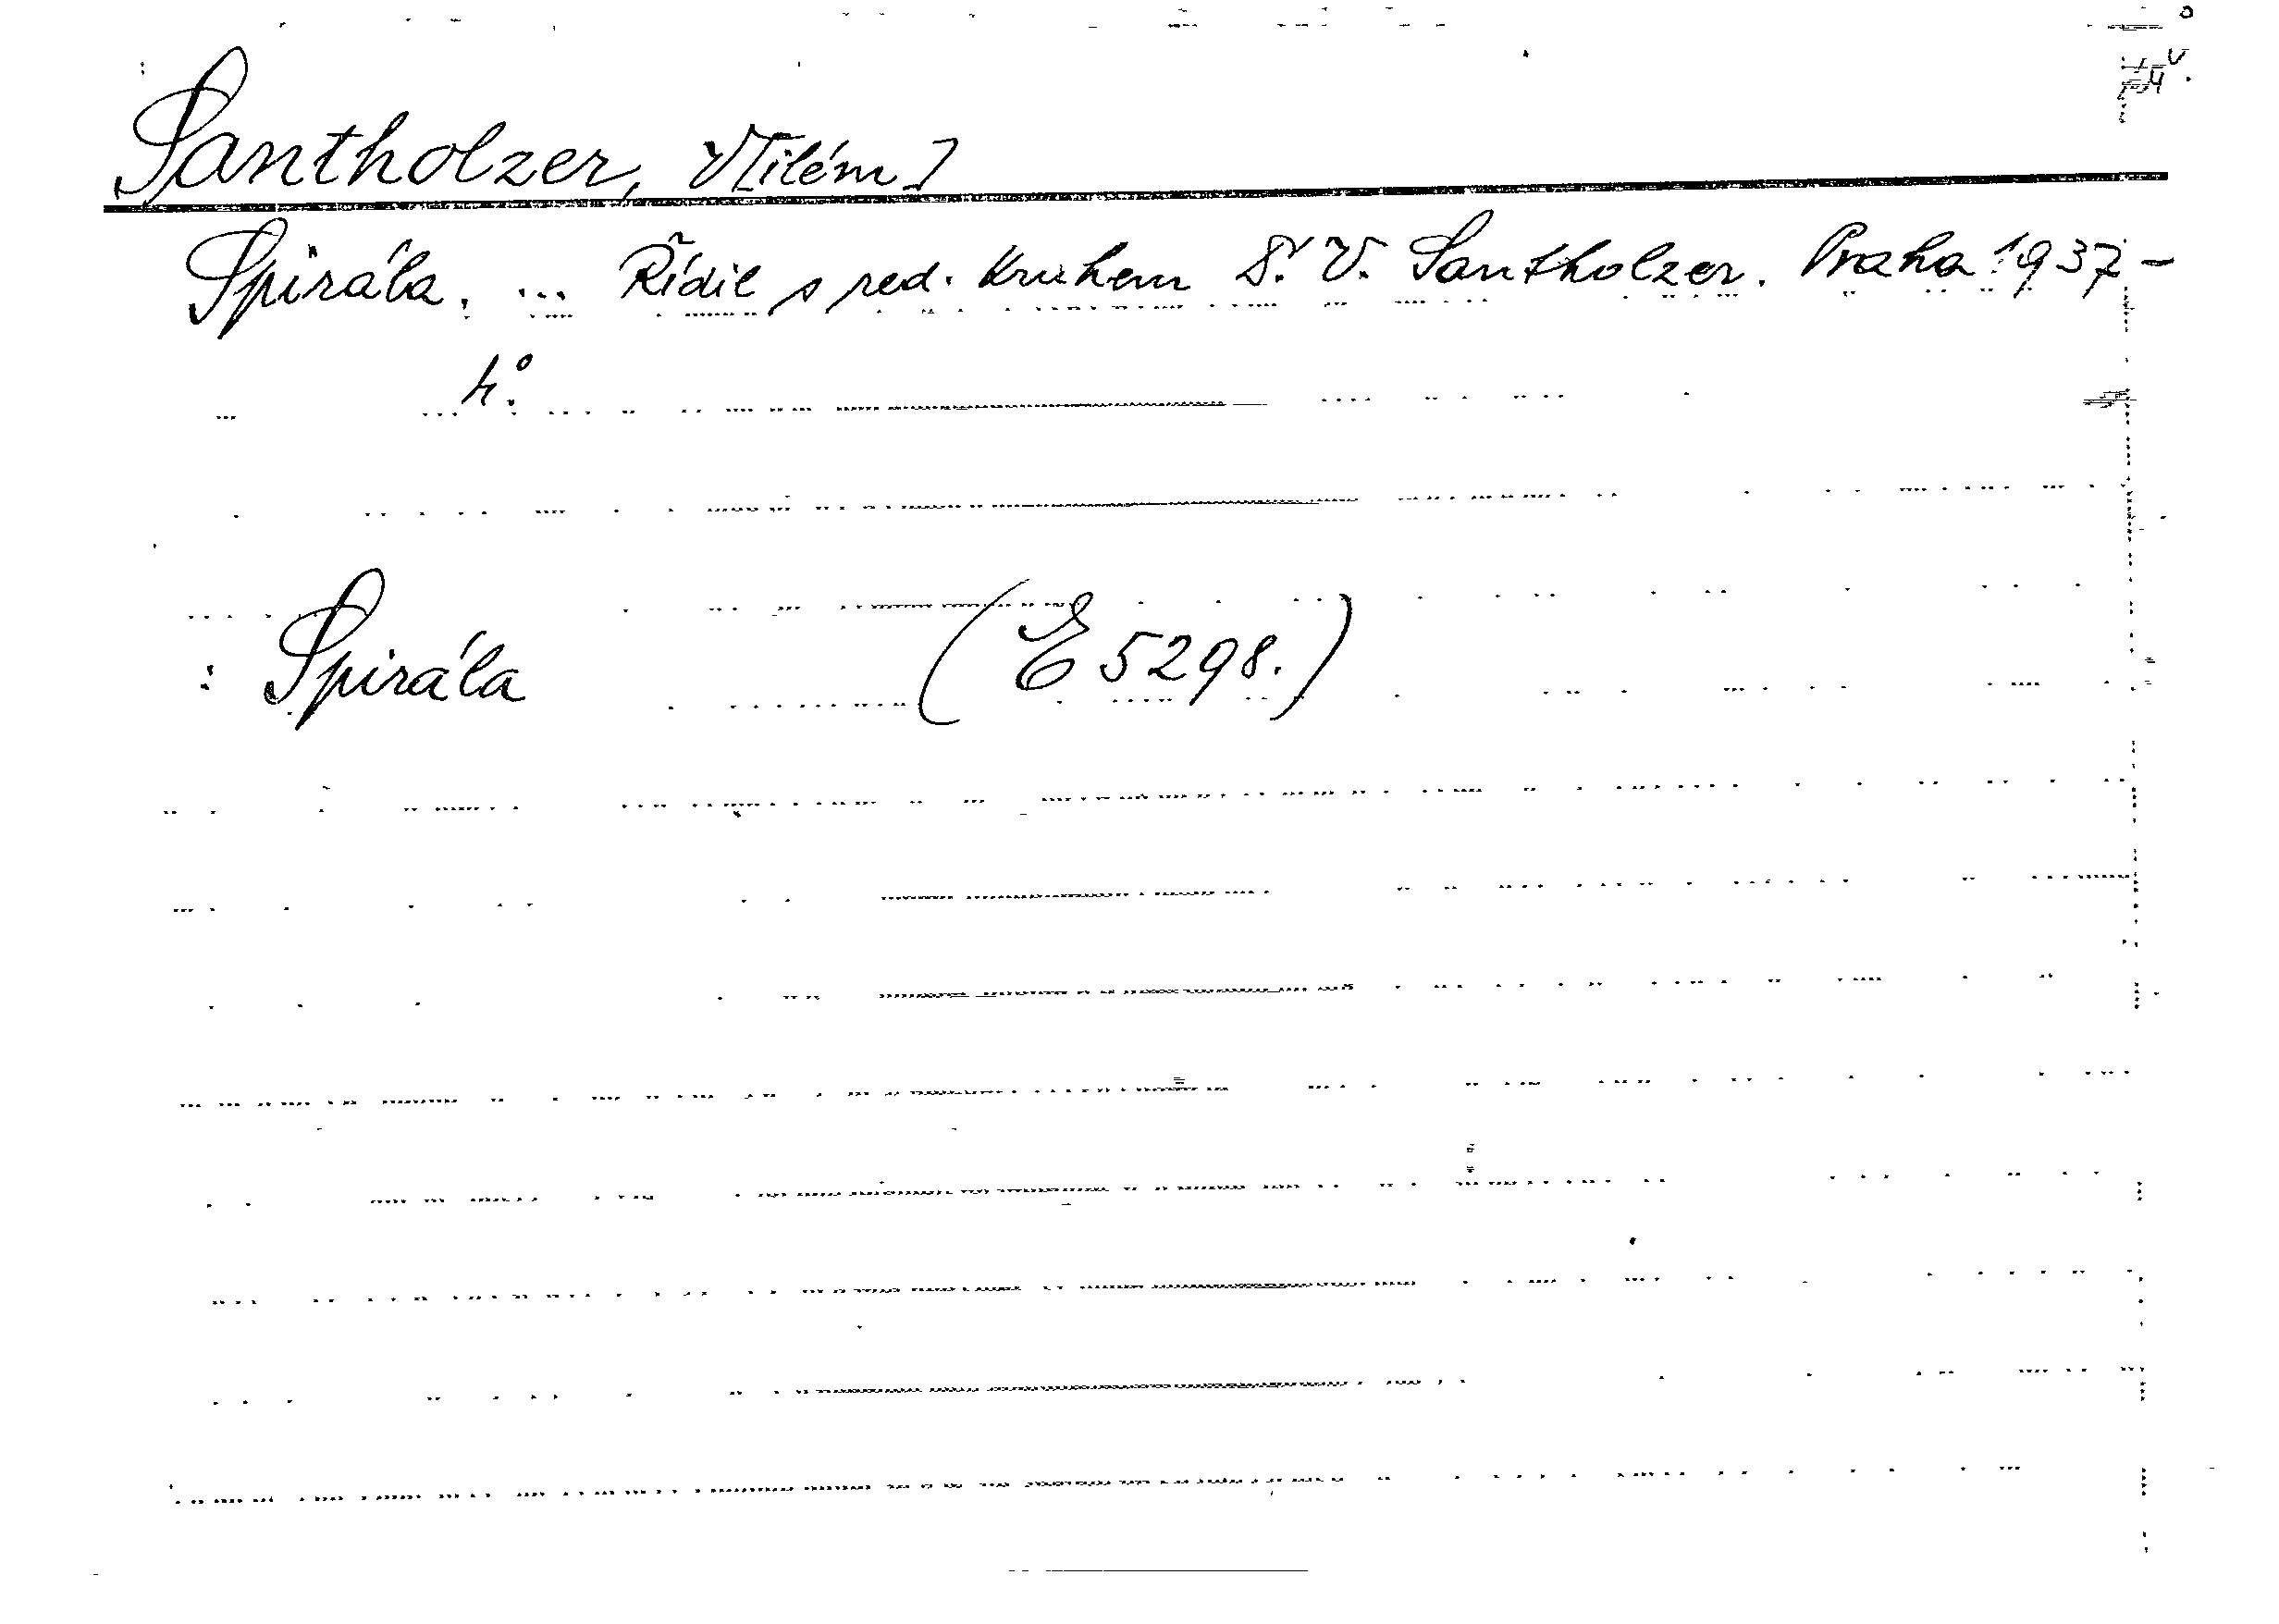 Santholzer, V[ilém]
Spirála. ... Řídil s red. kruhem Dr. V. Santholzer. Praha 1937-
4°.
: Spirála (E 5298.)